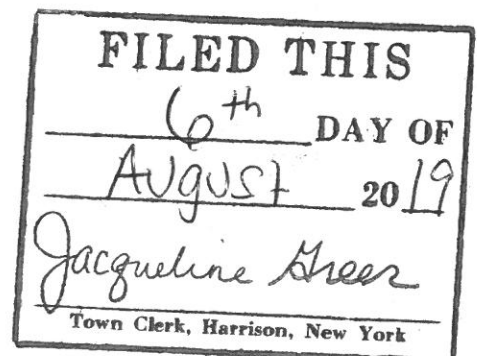 FILED THIS
6th DAY OF
AUgUST 2019
Jacqueline Greer
Town Clerk, Harrison, New York